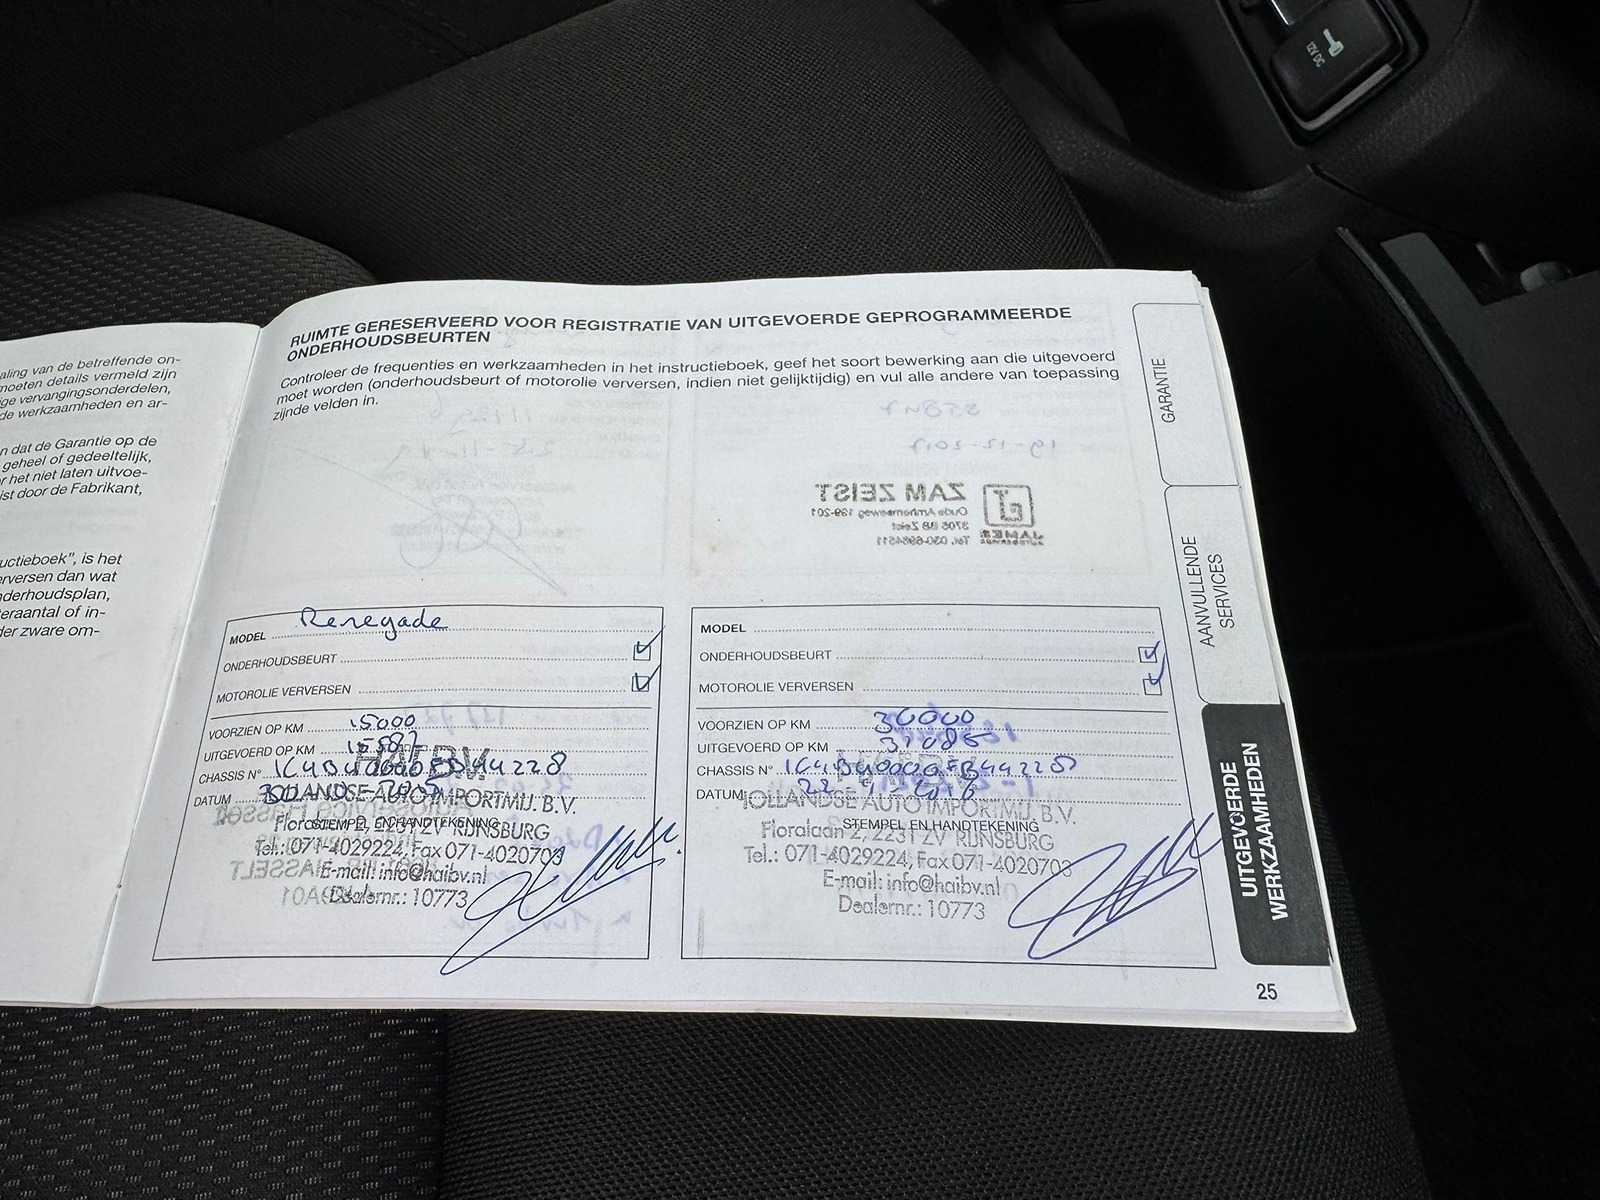 12V DC
aling van de betreffende on-
moeten details vermeld zijn
ige vervangingsonderdelen,
de werkzaamheden en ar-
en dat de Garantie op de
geheel of gedeeltelijk,
r het niet laten uitvoe-
ist door de Fabrikant,
uctieboek", is het
erversen dan wat
nderhoudsplan,
teraantal of in-
der zware om-
RUIMTE GERESERVEERD VOOR REGISTRATIE VAN UITGEVOERDE GEPROGRAMMEERDE
ONDERHOUDSBEURTEN
Controleer de frequenties en werkzaamheden in het instructieboek, geef het soort bewerking aan die uitgevoerd
moet worden (onderhoudsbeurt of motorolie verversen, indien niet gelijktijdig) en vul alle andere van toepassing
zijnde velden in.
ZAM ZEIST
Oude Arnhemseweg 199-201
3705 BB Zeist
Tel. 030-6984611
JAMES
MODEL Renegade
ONDERHOUDSBEURT
MOTOROLIE VERVERSEN
VOORZIEN OP KM 15000
UITGEVOERD OP KM
CHASSIS N°
DATUM
STEMPEL EN HANDTEKENING
HAI B.V.
HOLLANDSE AUTO IMPORTMIJ. B.V.
Floralaan 2, 2231 ZV RIJNSBURG
Tel.: 071-4029224, Fax 071-4020703
E-mail: info@haibv.nl
Dealernr.: 10773
MODEL
ONDERHOUDSBEURT
MOTOROLIE VERVERSEN
VOORZIEN OP KM 30000
UITGEVOERD OP KM
CHASSIS N°
DATUM
STEMPEL EN HANDTEKENING
HOLLANDSE AUTO IMPORTMIJ. B.V.
Floralaan 2, 2231 ZV RIJNSBURG
Tel.: 071-4029224, Fax 071-4020703
E-mail: info@haibv.nl
Dealernr.: 10773
GARANTIE
AANVULLENDE
SERVICES
UITGEVOERDE
WERKZAAMHEDEN
25